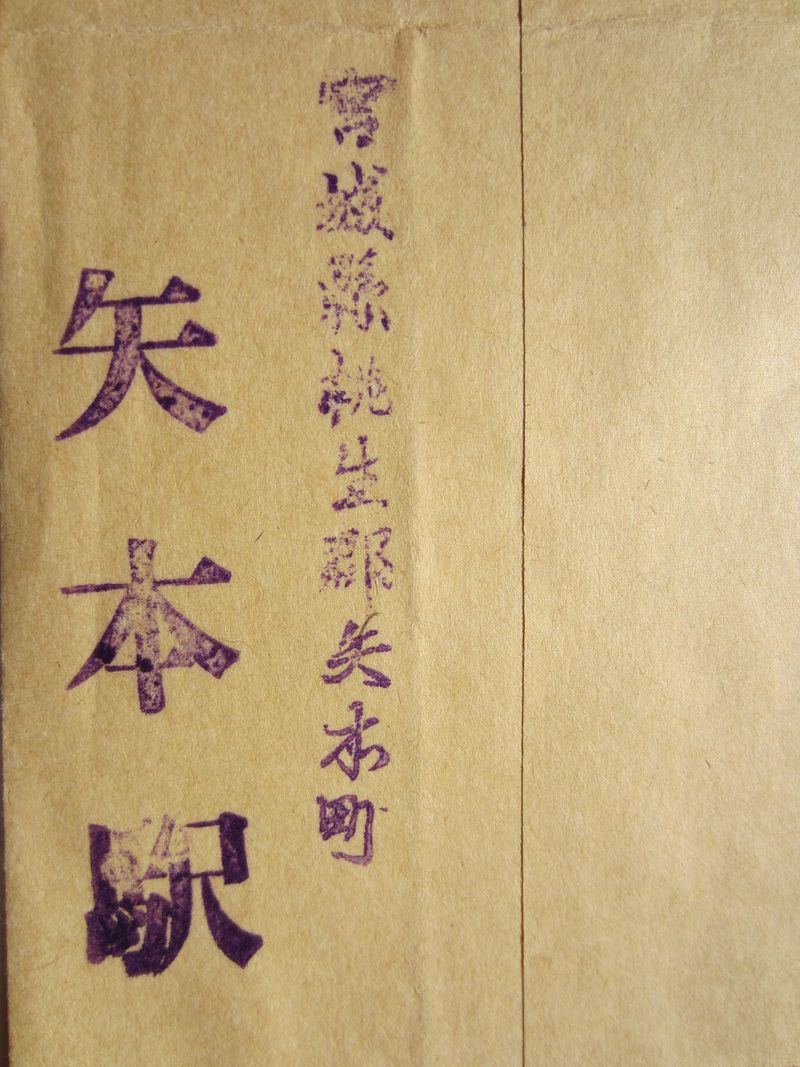 宮城縣桃生郡矢本町
矢本駅